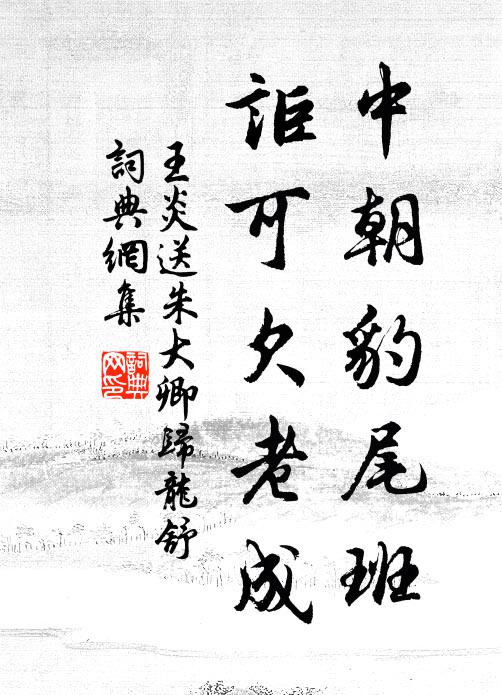 中朝豹尾班
詎可欠老成
王炎送朱大卿歸龍舒
詞典網集
詞典網印